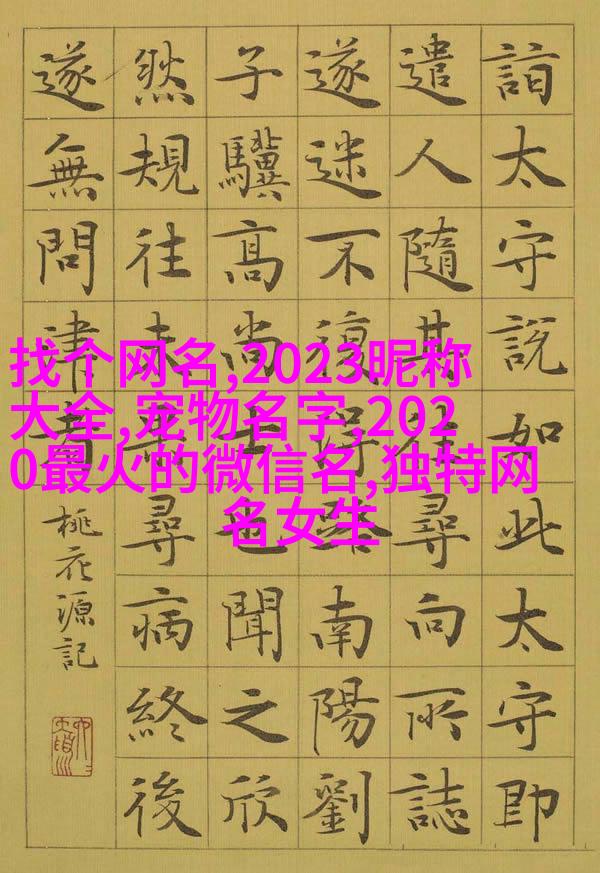 詣太守說如此太守即
遣人隨其往尋向所誌
遂迷不復得路南陽劉
子驥高尚士也聞之欣
然規往未果尋病終後
遂無問津者
桃花源記
找个网名,2023昵称
大全,宠物名字,202
0最火的微信名,独特网
名女生